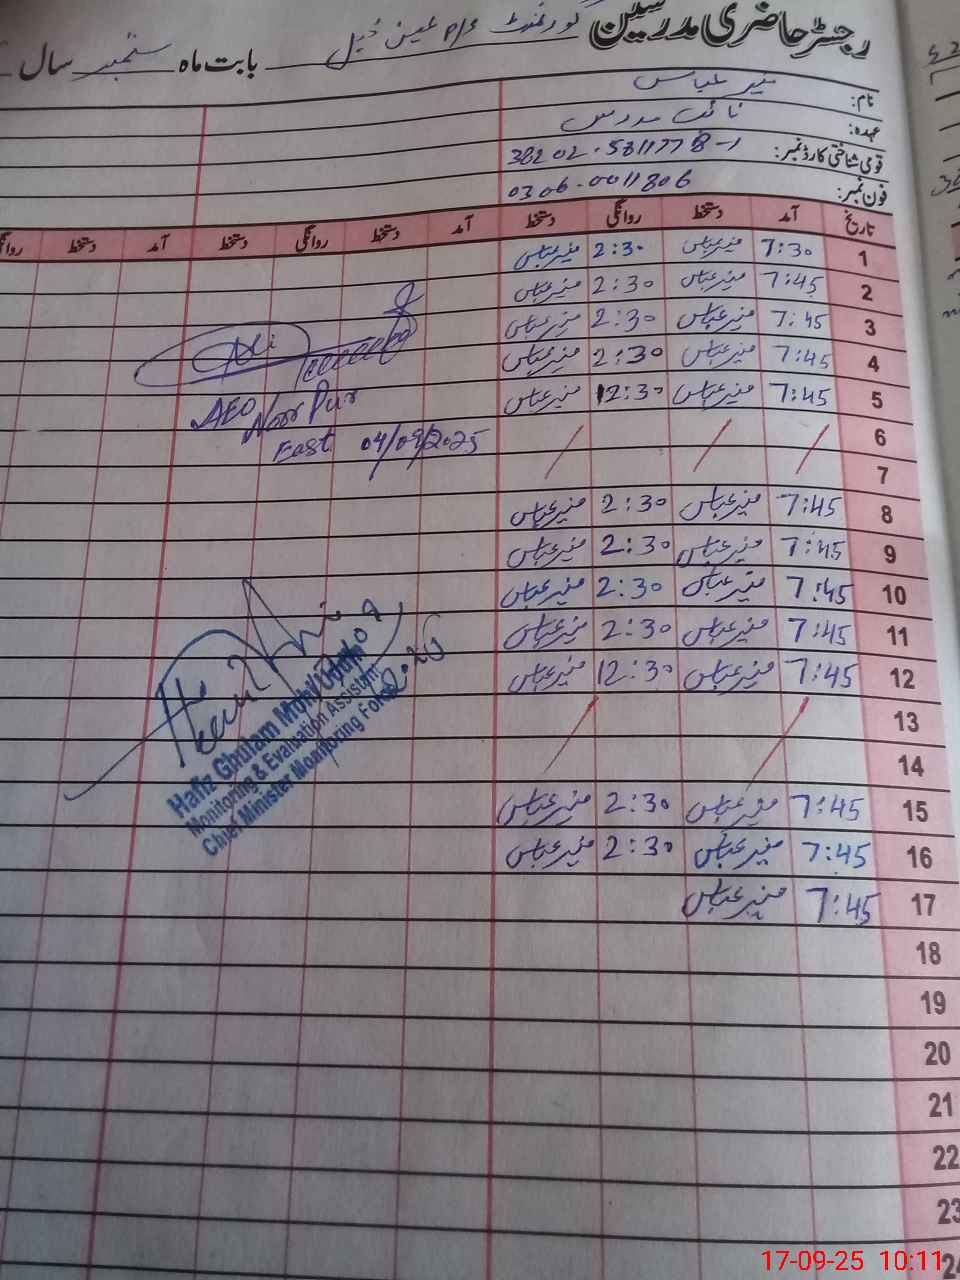 رجسٹر حاضری مدرسین گورنمنٹ
بابت ماہ ستمبر سال
نام: منیر عباس
عہدہ: نائب مدرس
قومی شناختی کارڈ نمبر: 38202-5811778-1
فون نمبر: 0306-0011806
تاریخ آمد دستخط روانگی دستخط آمد دستخط روانگی دستخط آمد دستخط روانگی
1 7:30 منیر عباس 2:30 منیر عباس
2 7:45 منیر عباس 2:30 منیر عباس
3 7:45 منیر عباس 2:30 منیر عباس
4 7:45 منیر عباس 2:30 منیر عباس
5 7:45 منیر عباس 12:30 منیر عباس
AEO Noor Pur
East 04/09/2025
6
7
8 7:45 منیر عباس 2:30 منیر عباس
9 7:45 منیر عباس 2:30 منیر عباس
10 7:45 منیر عباس 2:30 منیر عباس
11 7:45 منیر عباس 2:30 منیر عباس
12 7:45 منیر عباس 12:30 منیر عباس
Hafiz Ghulam Mohiuddin
Monitoring & Evaluation Assistant
Chief Minister Monitoring Force
13
14
15 7:45 منیر عباس 2:30 منیر عباس
16 7:45 منیر عباس 2:30 منیر عباس
17 7:45 منیر عباس
18
19
20
21
22
23
24
17-09-25 10:11